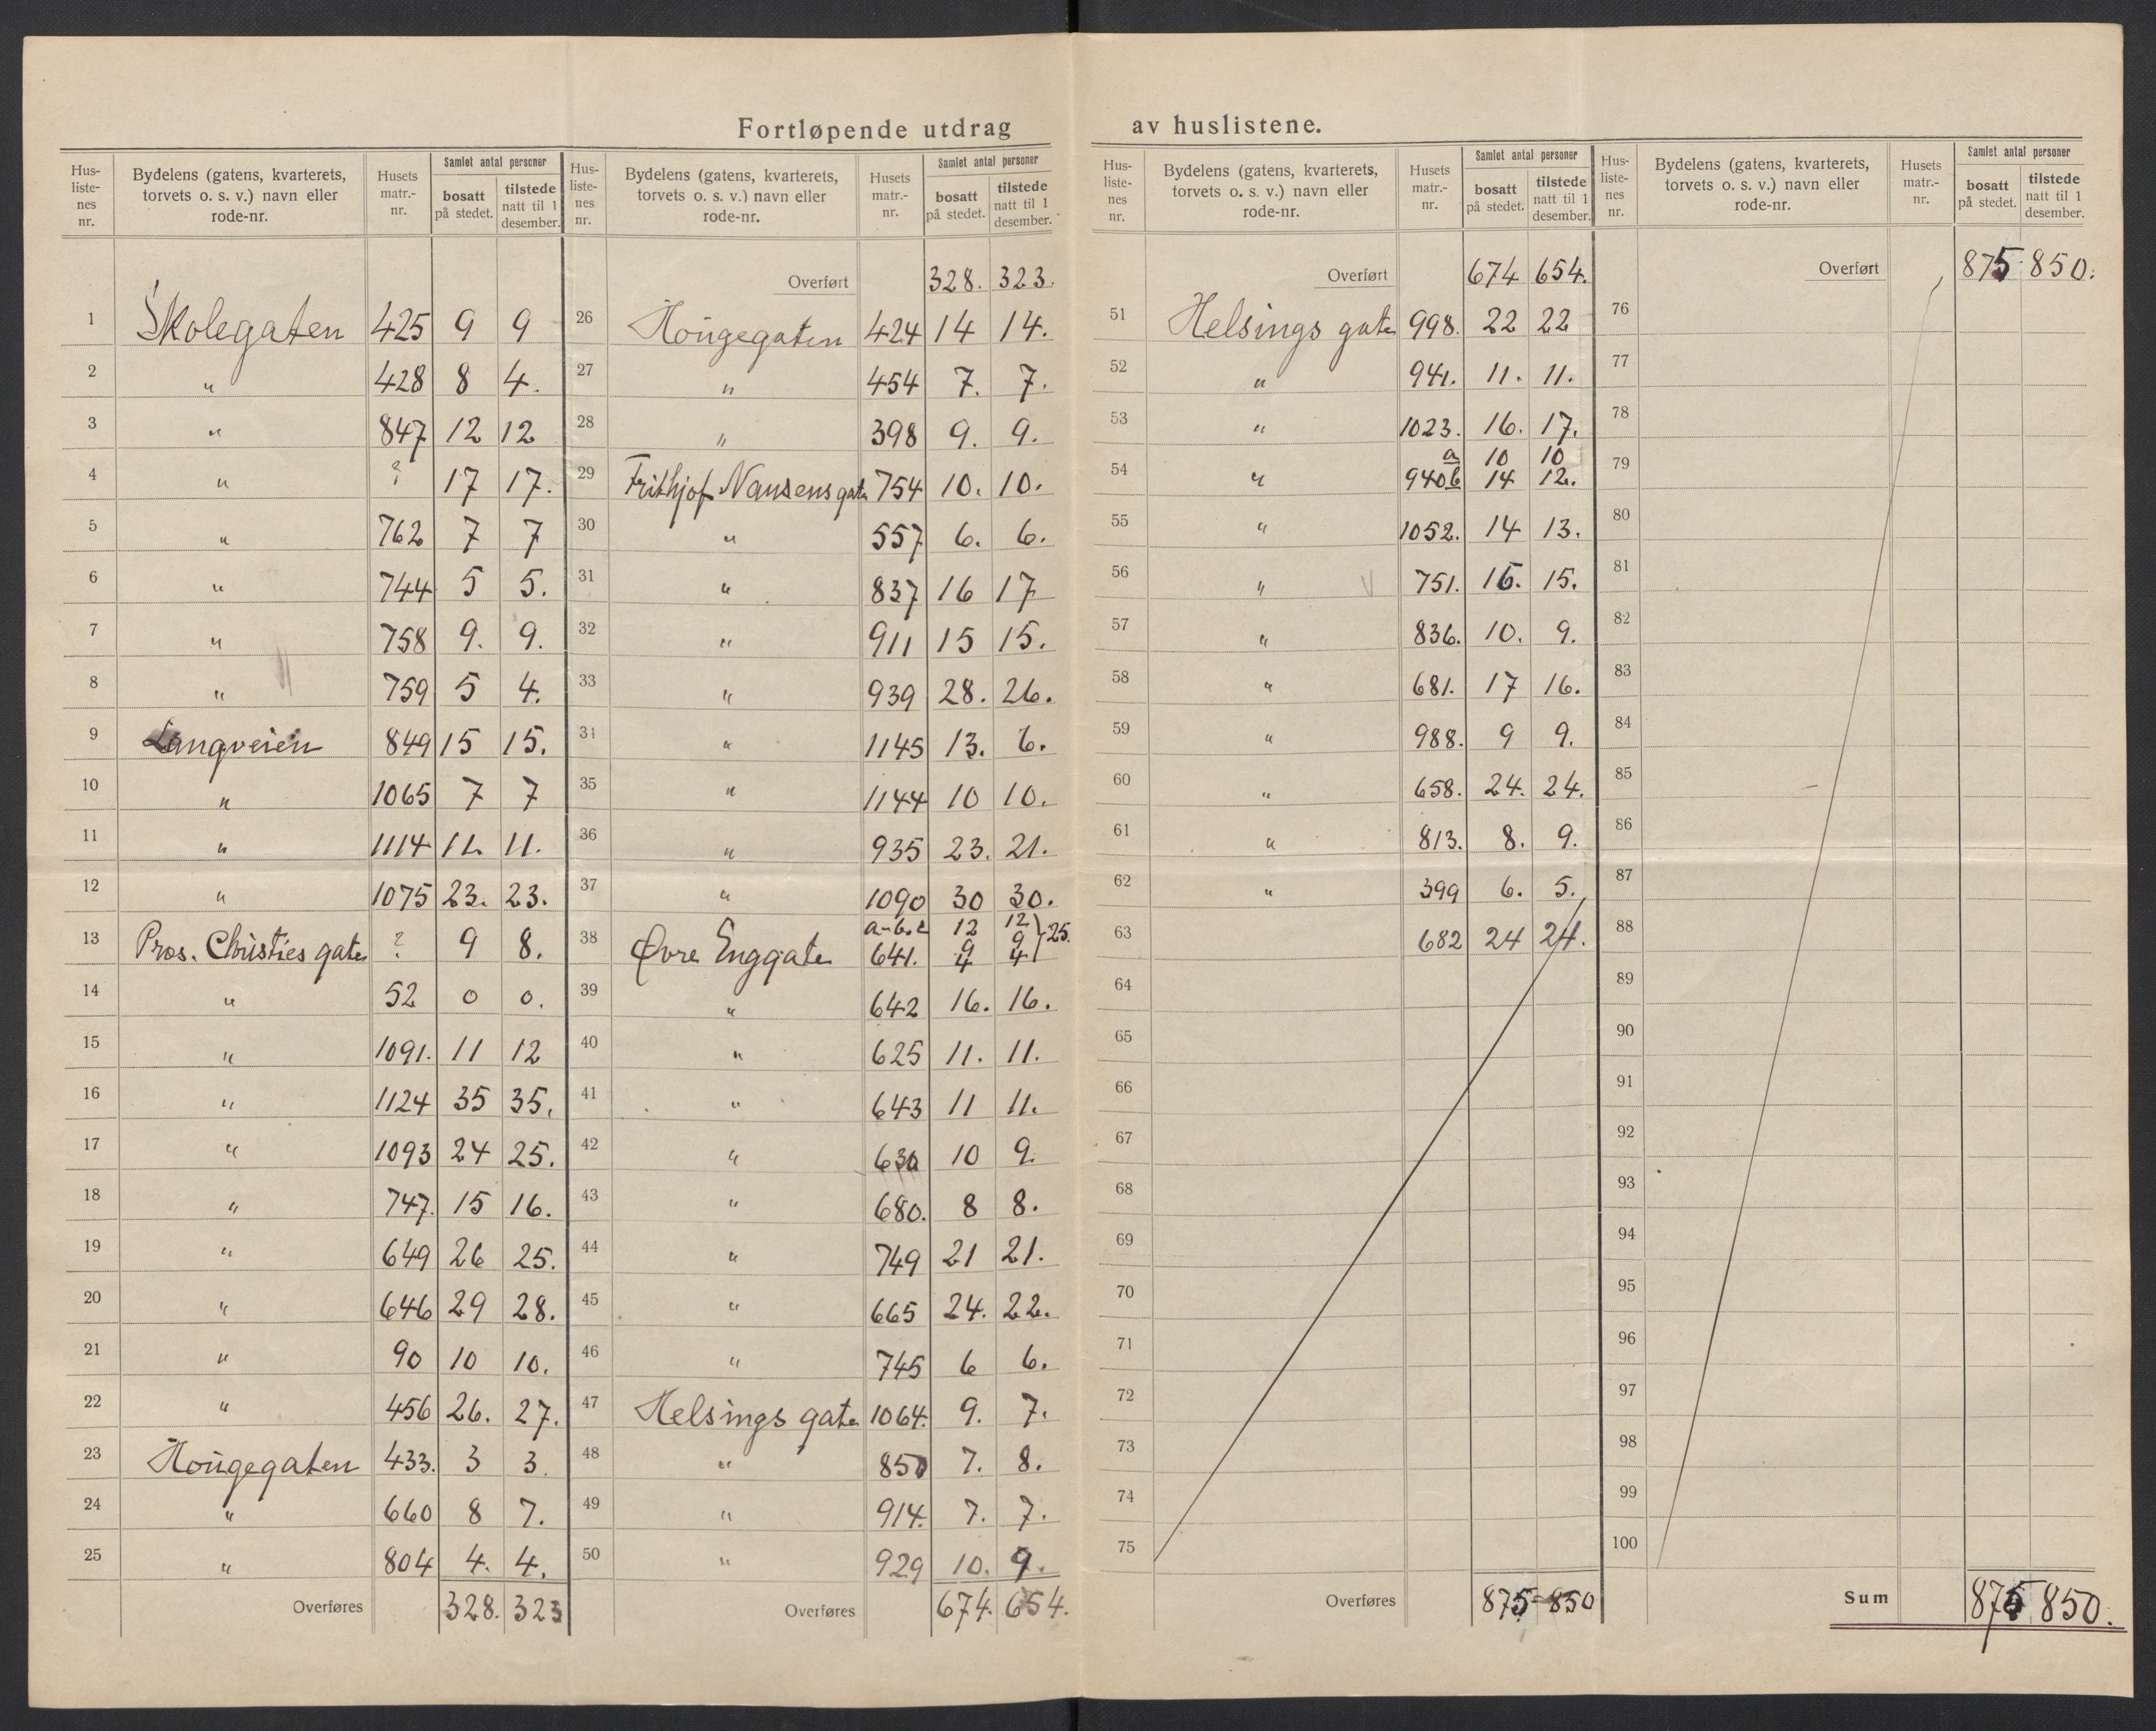 Fortløpende utdrag av huslistene.
Hus-liste-nes nr. | Bydelens (gatens, kvarterets, torvets o. s. v.) navn eller rode-nr. | Husets matr.-nr. | Samlet antal personer | bosatt på stedet. | tilstede natt til 1 desember.
1 Skolegaten 425 9 9
2 " 428 8 4.
3 " 847 12 12
4 " ? 17 17.
5 " 762 7 7
6 " 744 5 5.
7 " 758 9. 9.
8 " 759 5 4.
9 Langveien 849 15 15.
10 " 1065 7 7
11 " 1114 11. 11.
12 " 1075 23. 23.
13 Pros. Christies gate ? 9 8.
14 " 52 0 0.
15 " 1091. 11 12
16 " 1124 35 35.
17 " 1093 24 25.
18 " 747. 15 16.
19 " 649 26 25.
20 " 646 29 28.
21 " 90 10 10.
22 " 456 26. 27.
23 Hougegaten 433. 3 3.
24 " 660 8 7.
25 " 804 4. 4.
Overføres 328. 323
Hus-liste-nes nr. | Bydelens (gatens, kvarterets, torvets o. s. v.) navn eller rode-nr. | Husets matr.-nr. | Samlet antal personer | bosatt på stedet. | tilstede natt til 1 desember.
Overført 328. 323.
26 Hougegaten 424 14 14.
27 " 454 7. 7.
28 " 398 9. 9.
29 Frithjof Nansens gate 754 10. 10.
30 " 557 6. 6.
31 " 837 16 17
32 " 911 15 15.
33 " 939 28. 26.
34 " 1145 13. 6.
35 " 1144 10 10.
36 " 935 23. 21.
37 " 1090 30 30.
38 Øvre Enggate a-b.c 641. 12 9 4 12 9 4 } 25.
39 " 642 16. 16.
40 " 625 11. 11.
41 " 643 11 11.
42 " 630 10 9.
43 " 680. 8 8.
44 " 749 21 21.
45 " 665 24. 22.
46 " 745 6 6.
47 Helsings gate 1064. 9. 7.
48 " 850 7. 8.
49 " 914. 7. 7.
50 " 929 10. 9.
Overføres 674. 654.
Hus-liste-nes nr. | Bydelens (gatens, kvarterets, torvets o. s. v.) navn eller rode-nr. | Husets matr.-nr. | Samlet antal personer | bosatt på stedet. | tilstede natt til 1 desember.
Overført 674 654.
51 Helsings gate 998. 22 22
52 " 941. 11. 11.
53 " 1023. 16. 17.
54 " a 10 10
940 b 14 12.
55 " 1052. 14 13.
56 " 751. 16. 15.
57 " 836. 10. 9.
58 " 681. 17 16.
59 " 988. 9 9.
60 " 658. 24. 24.
61 " 813. 8. 9.
62 " 399 6. 5.
63 682 24 24.
64
65
66
67
68
69
70
71
72
73
74
75
Overføres 875 850
Hus-liste-nes nr. | Bydelens (gatens, kvarterets, torvets o. s. v.) navn eller rode-nr. | Husets matr.-nr. | Samlet antal personer | bosatt på stedet. | tilstede natt til 1 desember.
Overført 875 850.
76
77
78
79
80
81
82
83
84
85
86
87
88
89
90
91
92
93
94
95
96
97
98
99
100
Sum 875 850.